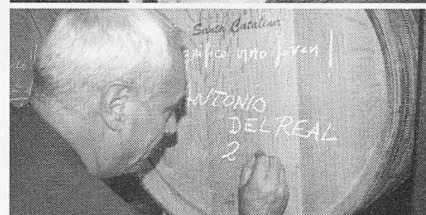 Santa Catalina
vino joven!
ANTONIO
DEL REAL
2